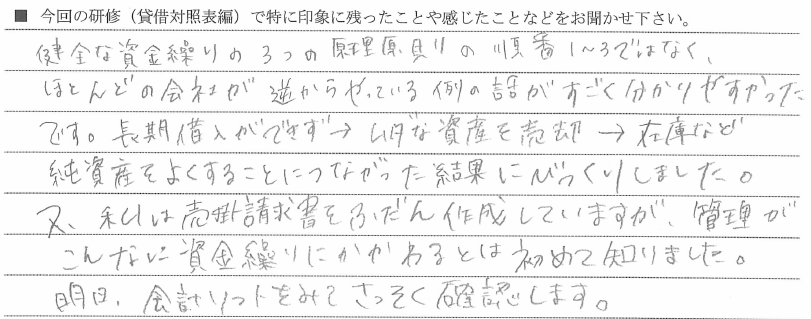 ■ 今回の研修（貸借対照表編）で特に印象に残ったことや感じたことなどをお聞かせ下さい。
健全な資金繰りの3つの原理原則の順番1～3ではなく、
ほとんどの会社が逆からやっている例の話がすごく分かりやすかった
です。長期借入ができず→ な資産を売却→在庫など
純資産をよくすることにつながった結果にびっくりしました。
又、私は売掛請求書をふだん作成していますが、管理が
こんなに資金繰りにかかわるとは初めて知りました。
明日、会計ソフトをみてさっそく確認します。